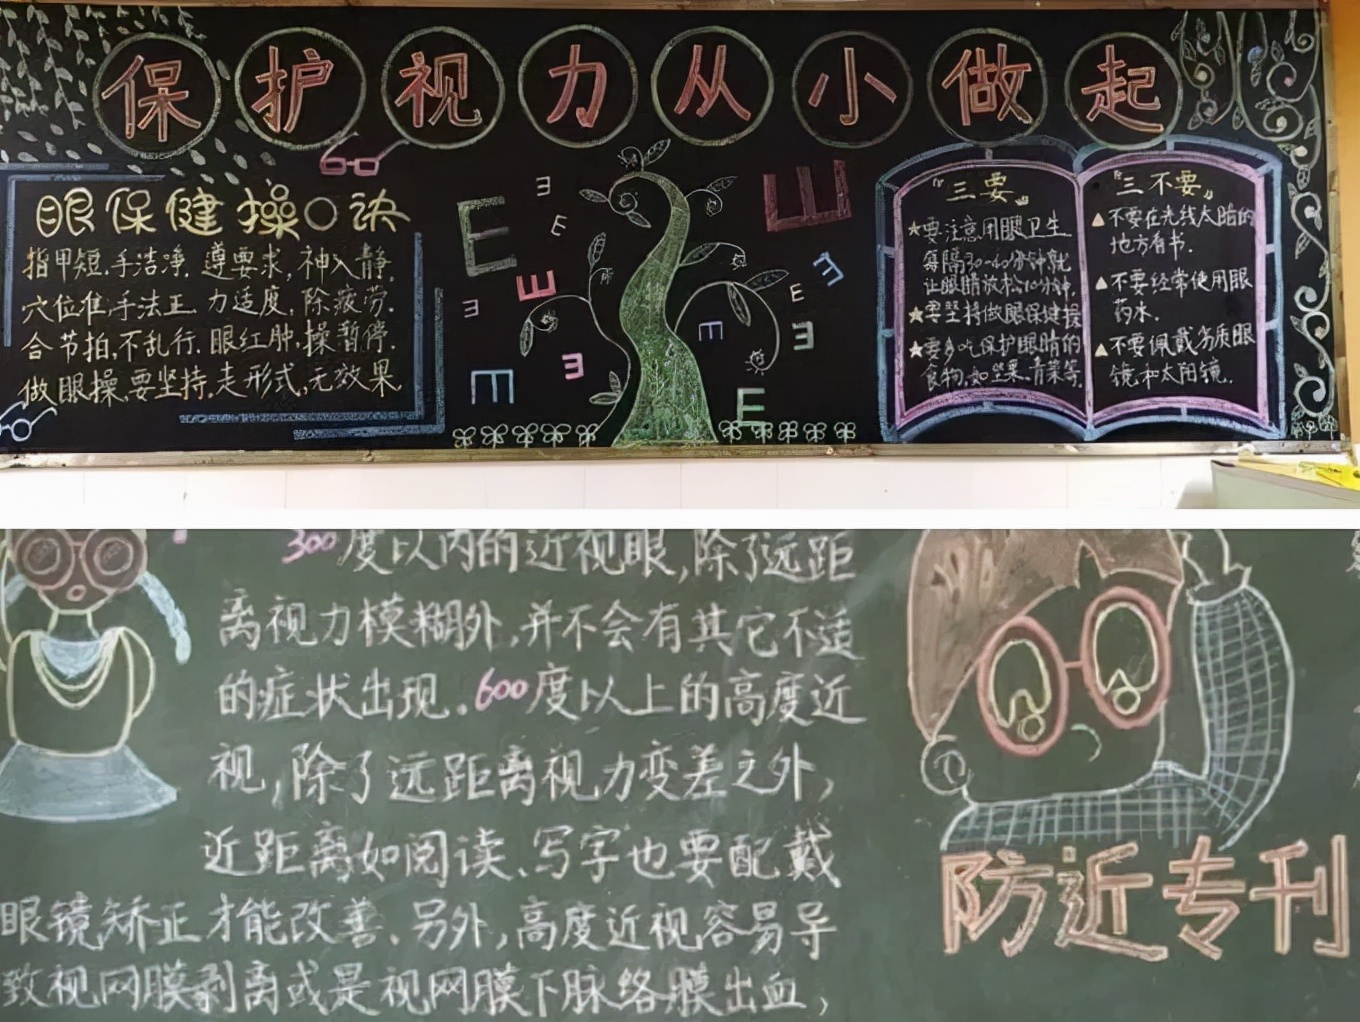 保护视力从小做起
眼保健操口诀
指甲短.手洁净.遵要求,神入静.
穴位准,手法正.力适度,除疲劳.
合节拍,不乱行.眼红肿,操暂停.
做眼操,要坚持.走形式,无效果.
E
E
E
E
E
E
E
E
E
E
E
E
E
E
“三要”
★要注意用眼卫生
每隔30-40分钟,就
让眼睛放松10分钟.
★要坚持做眼保健操
★要多吃保护眼睛的
食物,如坚果、青菜等.
“三不要”
▲不要在光线太暗的
地方看书.
▲不要经常使用眼
药水.
▲不要佩戴劣质眼
镜和太阳镜.
300度以内的近视眼,除了远距
离视力模糊外,并不会有其它不适
的症状出现.600度以上的高度近
视,除了远距离视力变差之外,
近距离如阅读、写字也要配戴
眼镜矫正才能改善、另外,高度近视容易导
致视网膜剥离或是视网膜下脉络膜出血,
防近专刊